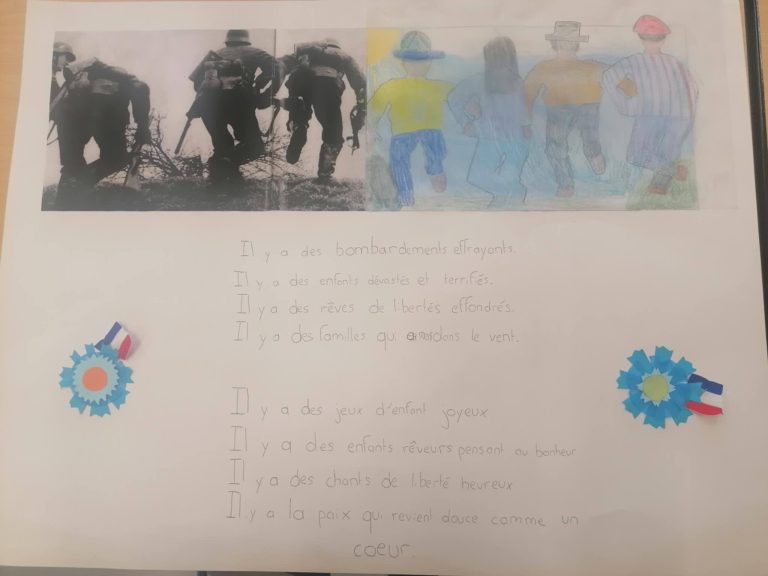 Il y a des bombardements effrayants.
Il y a des enfants dévastés et terrifiés.
Il y a des rêves de libertés effondrés.
Il y a des familles qui dans le vent.
Il y a des jeux d'enfant joyeux
Il y a des enfants rêveurs pensant au bonheur
Il y a des chants de liberté heureux
Il y a la paix qui revient douce comme un
coeur.